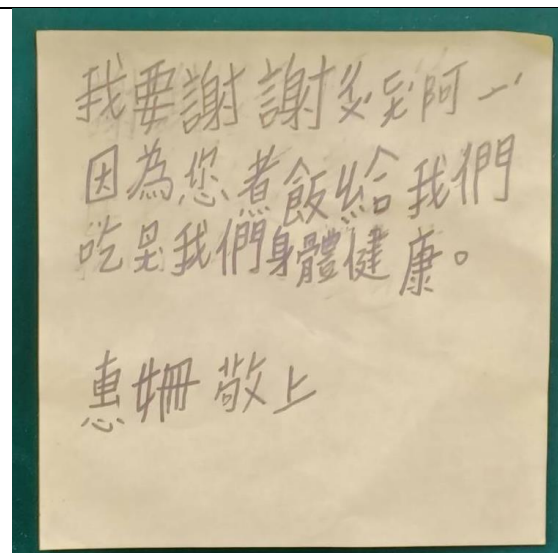 我要謝謝阿一
因為您煮飯給我們
吃是我們身體健康。
惠姍敬上